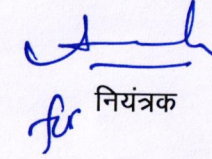 for नियंत्रक